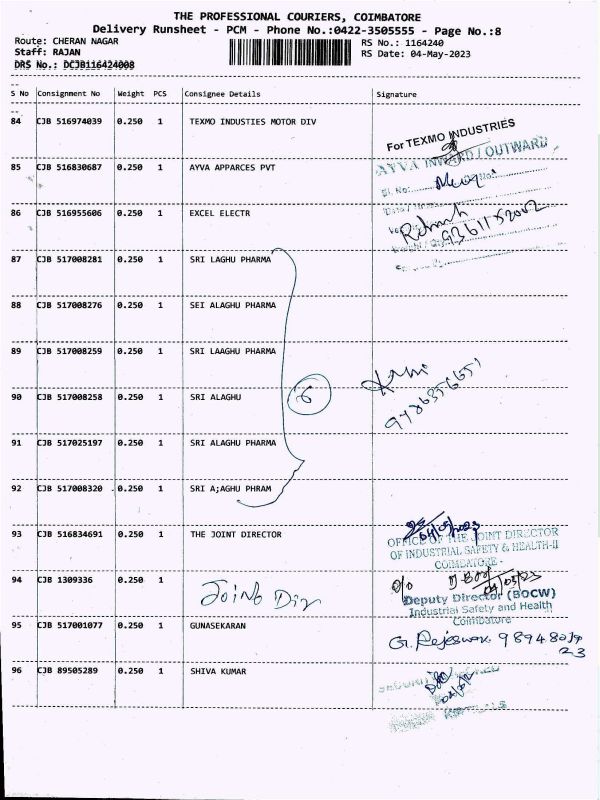 THE PROFESSIONAL COURIERS, COIMBATORE
Delivery Runsheet - PCM - Phone No.:0422-3505555 - Page No.:8
Route: CHERAN NAGAR RS No.: 1164240
Staff: RAJAN RS Date: 04-May-2023
DRS No.: DCJB116424008
S No Consignment No Weight PCS Consignee Details Signature
84 CJB 516974039 0.250 1 TEXMO INDUSTIES MOTOR DIV
For TEXMO INDUSTRIES
AYVA INWARD / OUTWARD
85 CJB 516830687 0.250 1 AYVA APPARCES PVT
Sl. No: No:
86 CJB 516955606 0.250 1 EXCEL ELECTR
87 CJB 517008281 0.250 1 SRI LAGHU PHARMA
88 CJB 517008276 0.250 1 SEI ALAGHU PHARMA
89 CJB 517008259 0.250 1 SRI LAAGHU PHARMA
90 CJB 517008258 0.250 1 SRI ALAGHU
6
9786356651
91 CJB 517025197 0.250 1 SRI ALAGHU PHARMA
92 CJB 517008320 0.250 1 SRI A;AGHU PHRAM
93 CJB 516834691 0.250 1 THE JOINT DIRECTOR
04/05/2023
OFFICE OF THE JOINT DIRECTOR
OF INDUSTRIAL SAFETY & HEALTH-II
COIMBATORE -
94 CJB 1309336 0.250 1 Joing Dir
04/05/23
Deputy Director (BOCW)
Industrial Safety and Health
Coimbatore
95 CJB 517001077 0.250 1 GUNASEKARAN
96 CJB 89505289 0.250 1 SHIVA KUMAR